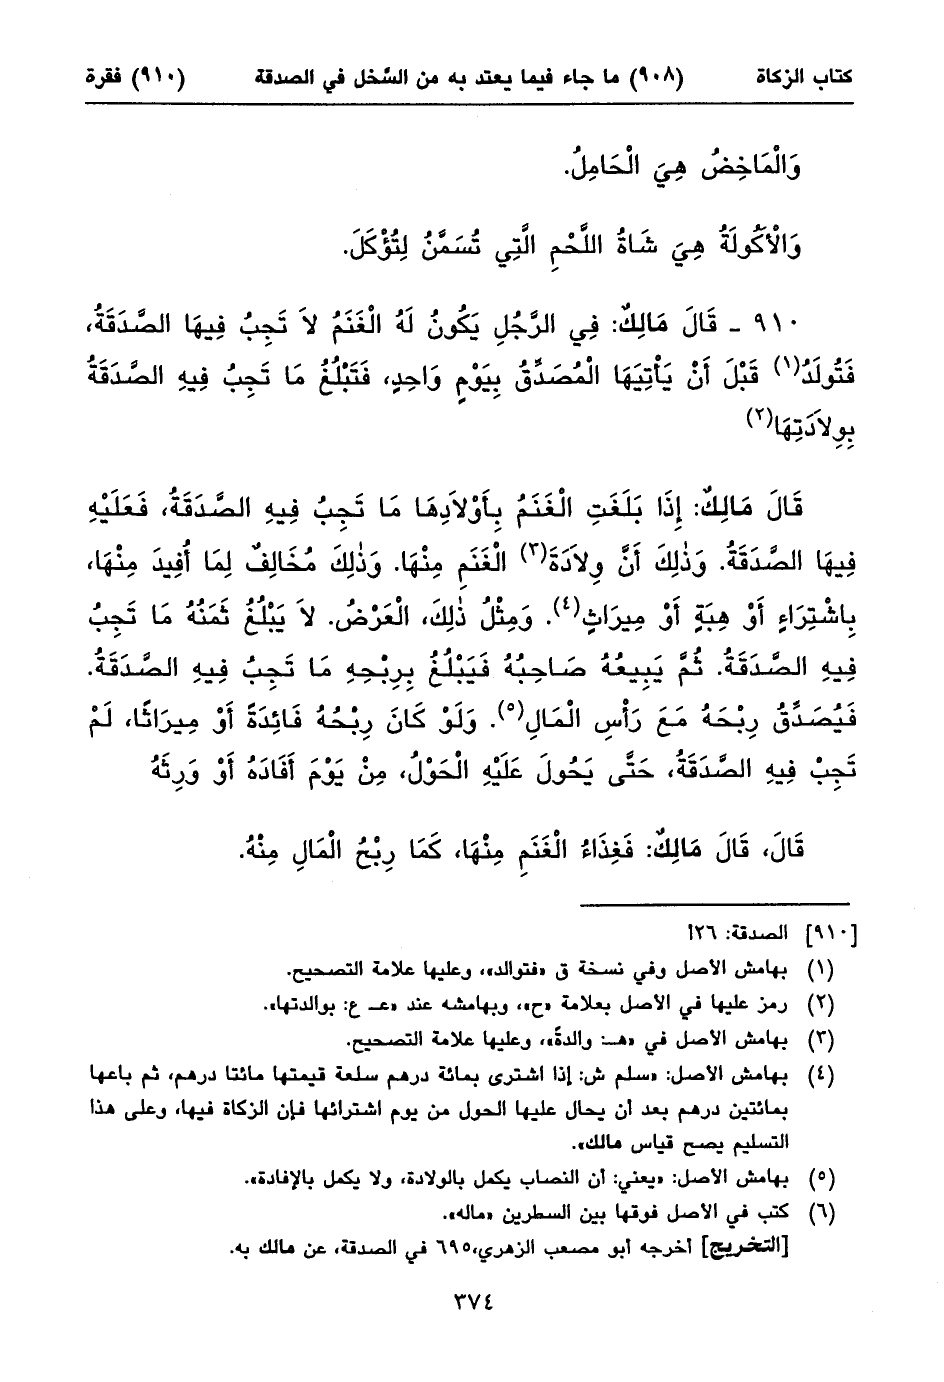 كتاب الزكاة (٩٠٨) ما جاء فيما يعتد به من السَّخل في الصدقة (٩١٠) فقرة
وَالْمَاخِضُ هِيَ الْحَامِلُ.
وَالْأَكُولَةُ هِيَ شَاةُ اللَّحْمِ الَّتِي تُسَمَّنُ لِتُؤْكَلَ.
٩١٠ - قَالَ مَالِكٌ: فِي الرَّجُلِ يَكُونُ لَهُ الْغَنَمُ لاَ تَجِبُ فِيهَا الصَّدَقَةُ،
فَتُولَدُ(١) قَبْلَ أَنْ يَأْتِيَهَا الْمُصَدِّقُ بِيَوْمٍ وَاحِدٍ، فَتَبْلُغُ مَا تَجِبُ فِيهِ الصَّدَقَةُ
بِوِلاَدَتِهَا(٢)
قَالَ مَالِكٌ: إِذَا بَلَغَتِ الْغَنَمُ بِأَوْلاَدِهَا مَا تَجِبُ فِيهِ الصَّدَقَةُ، فَعَلَيْهِ
فِيهَا الصَّدَقَةُ. وَذٰلِكَ أَنَّ وِلاَدَةَ(٣) الْغَنَمِ مِنْهَا. وَذٰلِكَ مُخَالِفٌ لِمَا أُفِيدَ مِنْهَا،
بِاشْتِرَاءٍ أَوْ هِبَةٍ أَوْ مِيرَاثٍ(٤). وَمِثْلُ ذٰلِكَ، الْعَرْضُ. لاَ يَبْلُغُ ثَمَنُهُ مَا تَجِبُ
فِيهِ الصَّدَقَةُ. ثُمَّ يَبِيعُهُ صَاحِبُهُ فَيَبْلُغُ بِرِبْحِهِ مَا تَجِبُ فِيهِ الصَّدَقَةُ.
فَيُصَدِّقُ رِبْحَهُ مَعَ رَأْسِ الْمَالِ(٥). وَلَوْ كَانَ رِبْحُهُ فَائِدَةً أَوْ مِيرَاثًا، لَمْ
تَجِبْ فِيهِ الصَّدَقَةُ، حَتَّى يَحُولَ عَلَيْهِ الْحَوْلُ، مِنْ يَوْمَ أَفَادَهُ أَوْ وَرِثَهُ
قَالَ، قَالَ مَالِكٌ: فَغِذَاءُ الْغَنَمِ مِنْهَا، كَمَا رِبْحُ الْمَالِ مِنْهُ.
[٩١٠] الصدقة: ١٢٦
(١) بهامش الأصل وفي نسخة ق «فتوالد»، وعليها علامة التصحيح.
(٢) رمز عليها في الأصل بعلامة «ح»، وبهامشه عند «عـ ع: بوالدتها».
(٣) بهامش الأصل في «هـ: والدةً»، وعليها علامة التصحيح.
(٤) بهامش الأصل: «سلم ش: إذا اشترى بمائة درهم سلعة قيمتها مائتا درهم، ثم باعها
بمائتين درهم بعد أن يحال عليها الحول من يوم اشترائها فإن الزكاة فيها، وعلى هذا
التسليم يصح قياس مالك».
(٥) بهامش الأصل: «يعني: أن النصاب يكمل بالولادة، ولا يكمل بالإفادة».
(٦) كتب في الأصل فوقها بين السطرين «ماله».
[التخريج] أخرجه أبو مصعب الزهري،٦٩٥ في الصدقة، عن مالك به.
٣٧٤